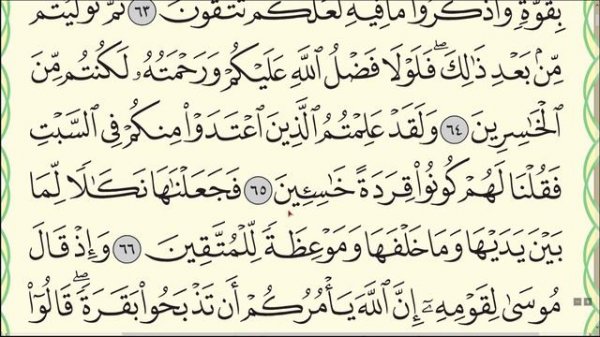 بِقُوَّةٍ وَاذْكُرُوا مَا فِيهِ لَعَلَّكُمْ تَتَّقُونَ ٦٣ ثُمَّ تَوَلَّيْتُم
مِّنۢ بَعْدِ ذَٰلِكَ ۖ فَلَوْلَا فَضْلُ اللَّهِ عَلَيْكُمْ وَرَحْمَتُهُۥ لَكُنتُم مِّنَ
الْخَاسِرِينَ ٦٤ وَلَقَدْ عَلِمْتُمُ الَّذِينَ اعْتَدَوْا مِنكُمْ فِي السَّبْتِ
فَقُلْنَا لَهُمْ كُونُوا قِرَدَةً خَاسِئِينَ ٦٥ فَجَعَلْنَاهَا نَكَالًا لِّمَا
بَيْنَ يَدَيْهَا وَمَا خَلْفَهَا وَمَوْعِظَةً لِّلْمُتَّقِينَ ٦٦ وَإِذْ قَالَ
مُوسَىٰ لِقَوْمِهِۦٓ إِنَّ اللَّهَ يَأْمُرُكُمْ أَن تَذْبَحُوا بَقَرَةً ۖ قَالُوٓا